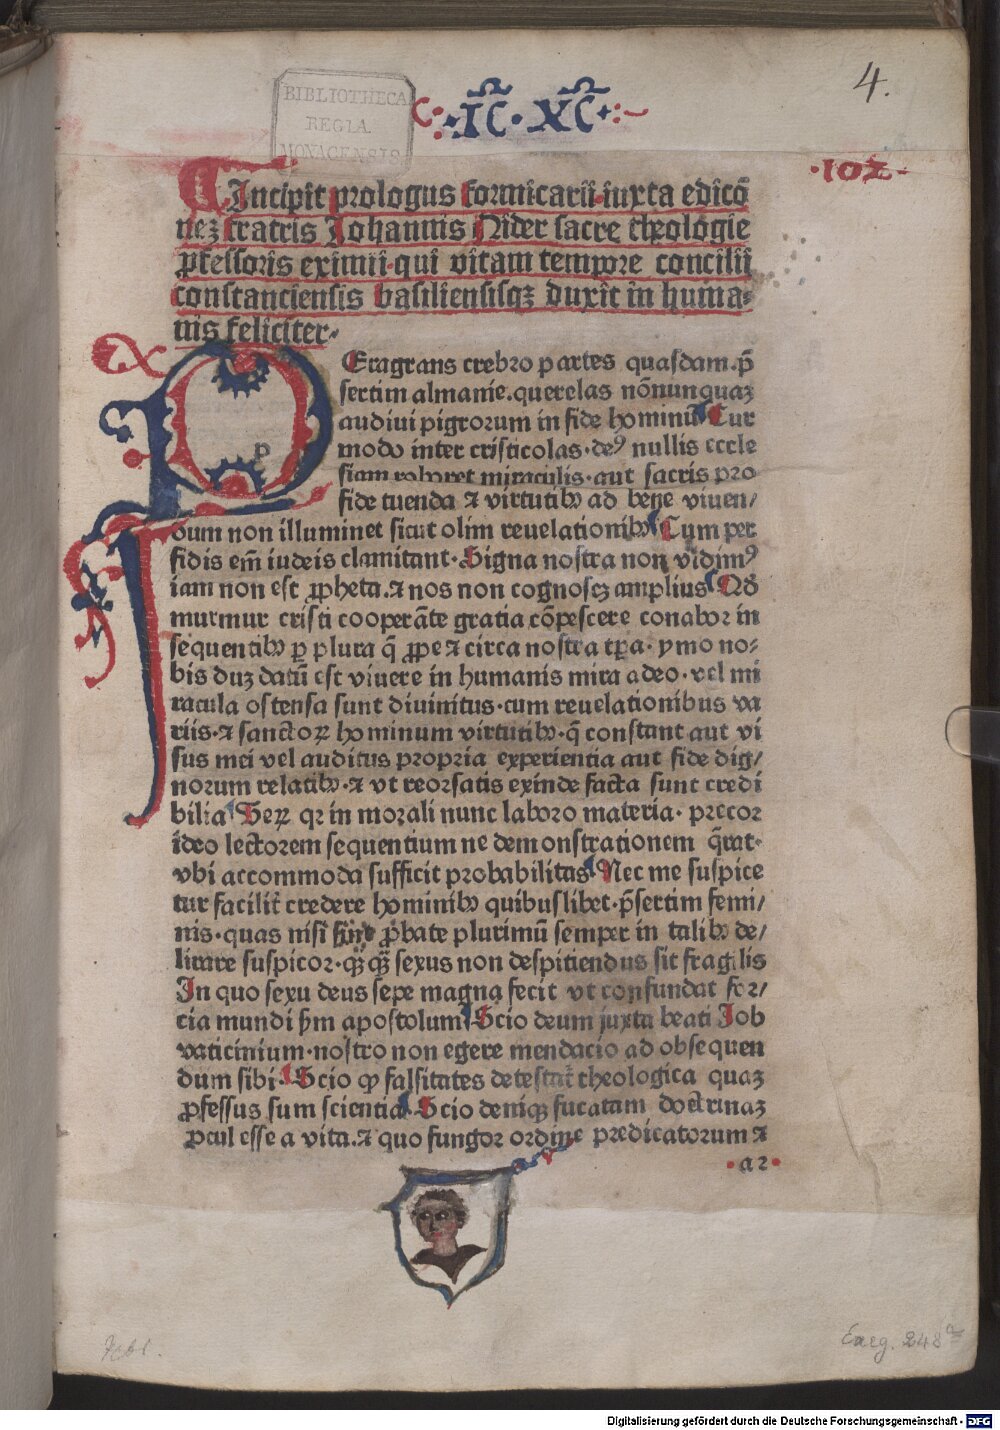 4.
BIBLIOTHECA
REGIA
MONACENSIS.
IC̄ · XC̄
·102·
Incipit prologus formicarii iuxta edicō
neꝫ fratris Johannis Nider sacre theologie
ꝓfessoris eximii·qui vitam tempore concilii
constanciensis basiliensisqꝫ duxit in huma-
nis feliciter·
PEragrans crebro partes quasdam·p̄
sertim almanie·querelas nōnunquaꝫ
audiui pigrorum in fide hominū Cur
modo inter cristicolas·deꝰ nullis eccle
siam roboret miraculis·aut sacris pro
fide tuenda ⁊ virtutibꝫ ad bene viuen/
dum non illuminet sicut olim reuelationibꝫ Cum per
fidis em̄ iudeis clamitant·Signa nostra non vidimꝰ
iam non est ꝓpheta·⁊ nos non cognoscꝫ amplius Qd̄
murmur cristi cooperāte gratia cōpescere conabor in
sequentibꝫ ꝑ plura q̄ ꝓpe ⁊ circa nostra tꝑa·ymo no-
bis duꝫ datū est viuere in humanis mira adeo·vel mi
racula ostensa sunt diuinitus·cum reuelationibus va
riis·⁊ sanctoꝝ hominum virtutibꝫ·q̄ constant aut vi
sus mei vel auditus propria experientia aut fide dig/
norum relatibꝫ·⁊ vt reorsatis exinde facta sunt credi
bilia Seꝝ qr in morali nunc laboro materia·precor
ideo lectorem sequentium ne demonstrationem q̄rat·
vbi accommoda sufficit probabilitas Nec me suspice
tur facilit̄ credere hominibꝫ quibuslibet·p̄sertim femi/
nis·quas nisi ꝓbate plurimū semper in talibꝫ de/
lirare suspicor·qꝫ qꝫ̄ sexus non despitiendus sit fragilis
In quo sexu deus sepe magna fecit vt confundat for/
cia mundi ẜm apostolum Scio deum juxta beati Job
vaticinium·nostro non egere mendacio ad obsequen
dum sibi·Scio ꝙ falsitates detestat̄ theologica quaꝫ
ꝓfessus sum scientia Scio deniqꝫ fucatam doctrinaꝫ
ꝓcul esse a vita·⁊ quo fungor ordine predicatorum ⁊
·a2·
Exeg. 248
Digitalisierung gefördert durch die Deutsche Forschungsgemeinschaft - DFG